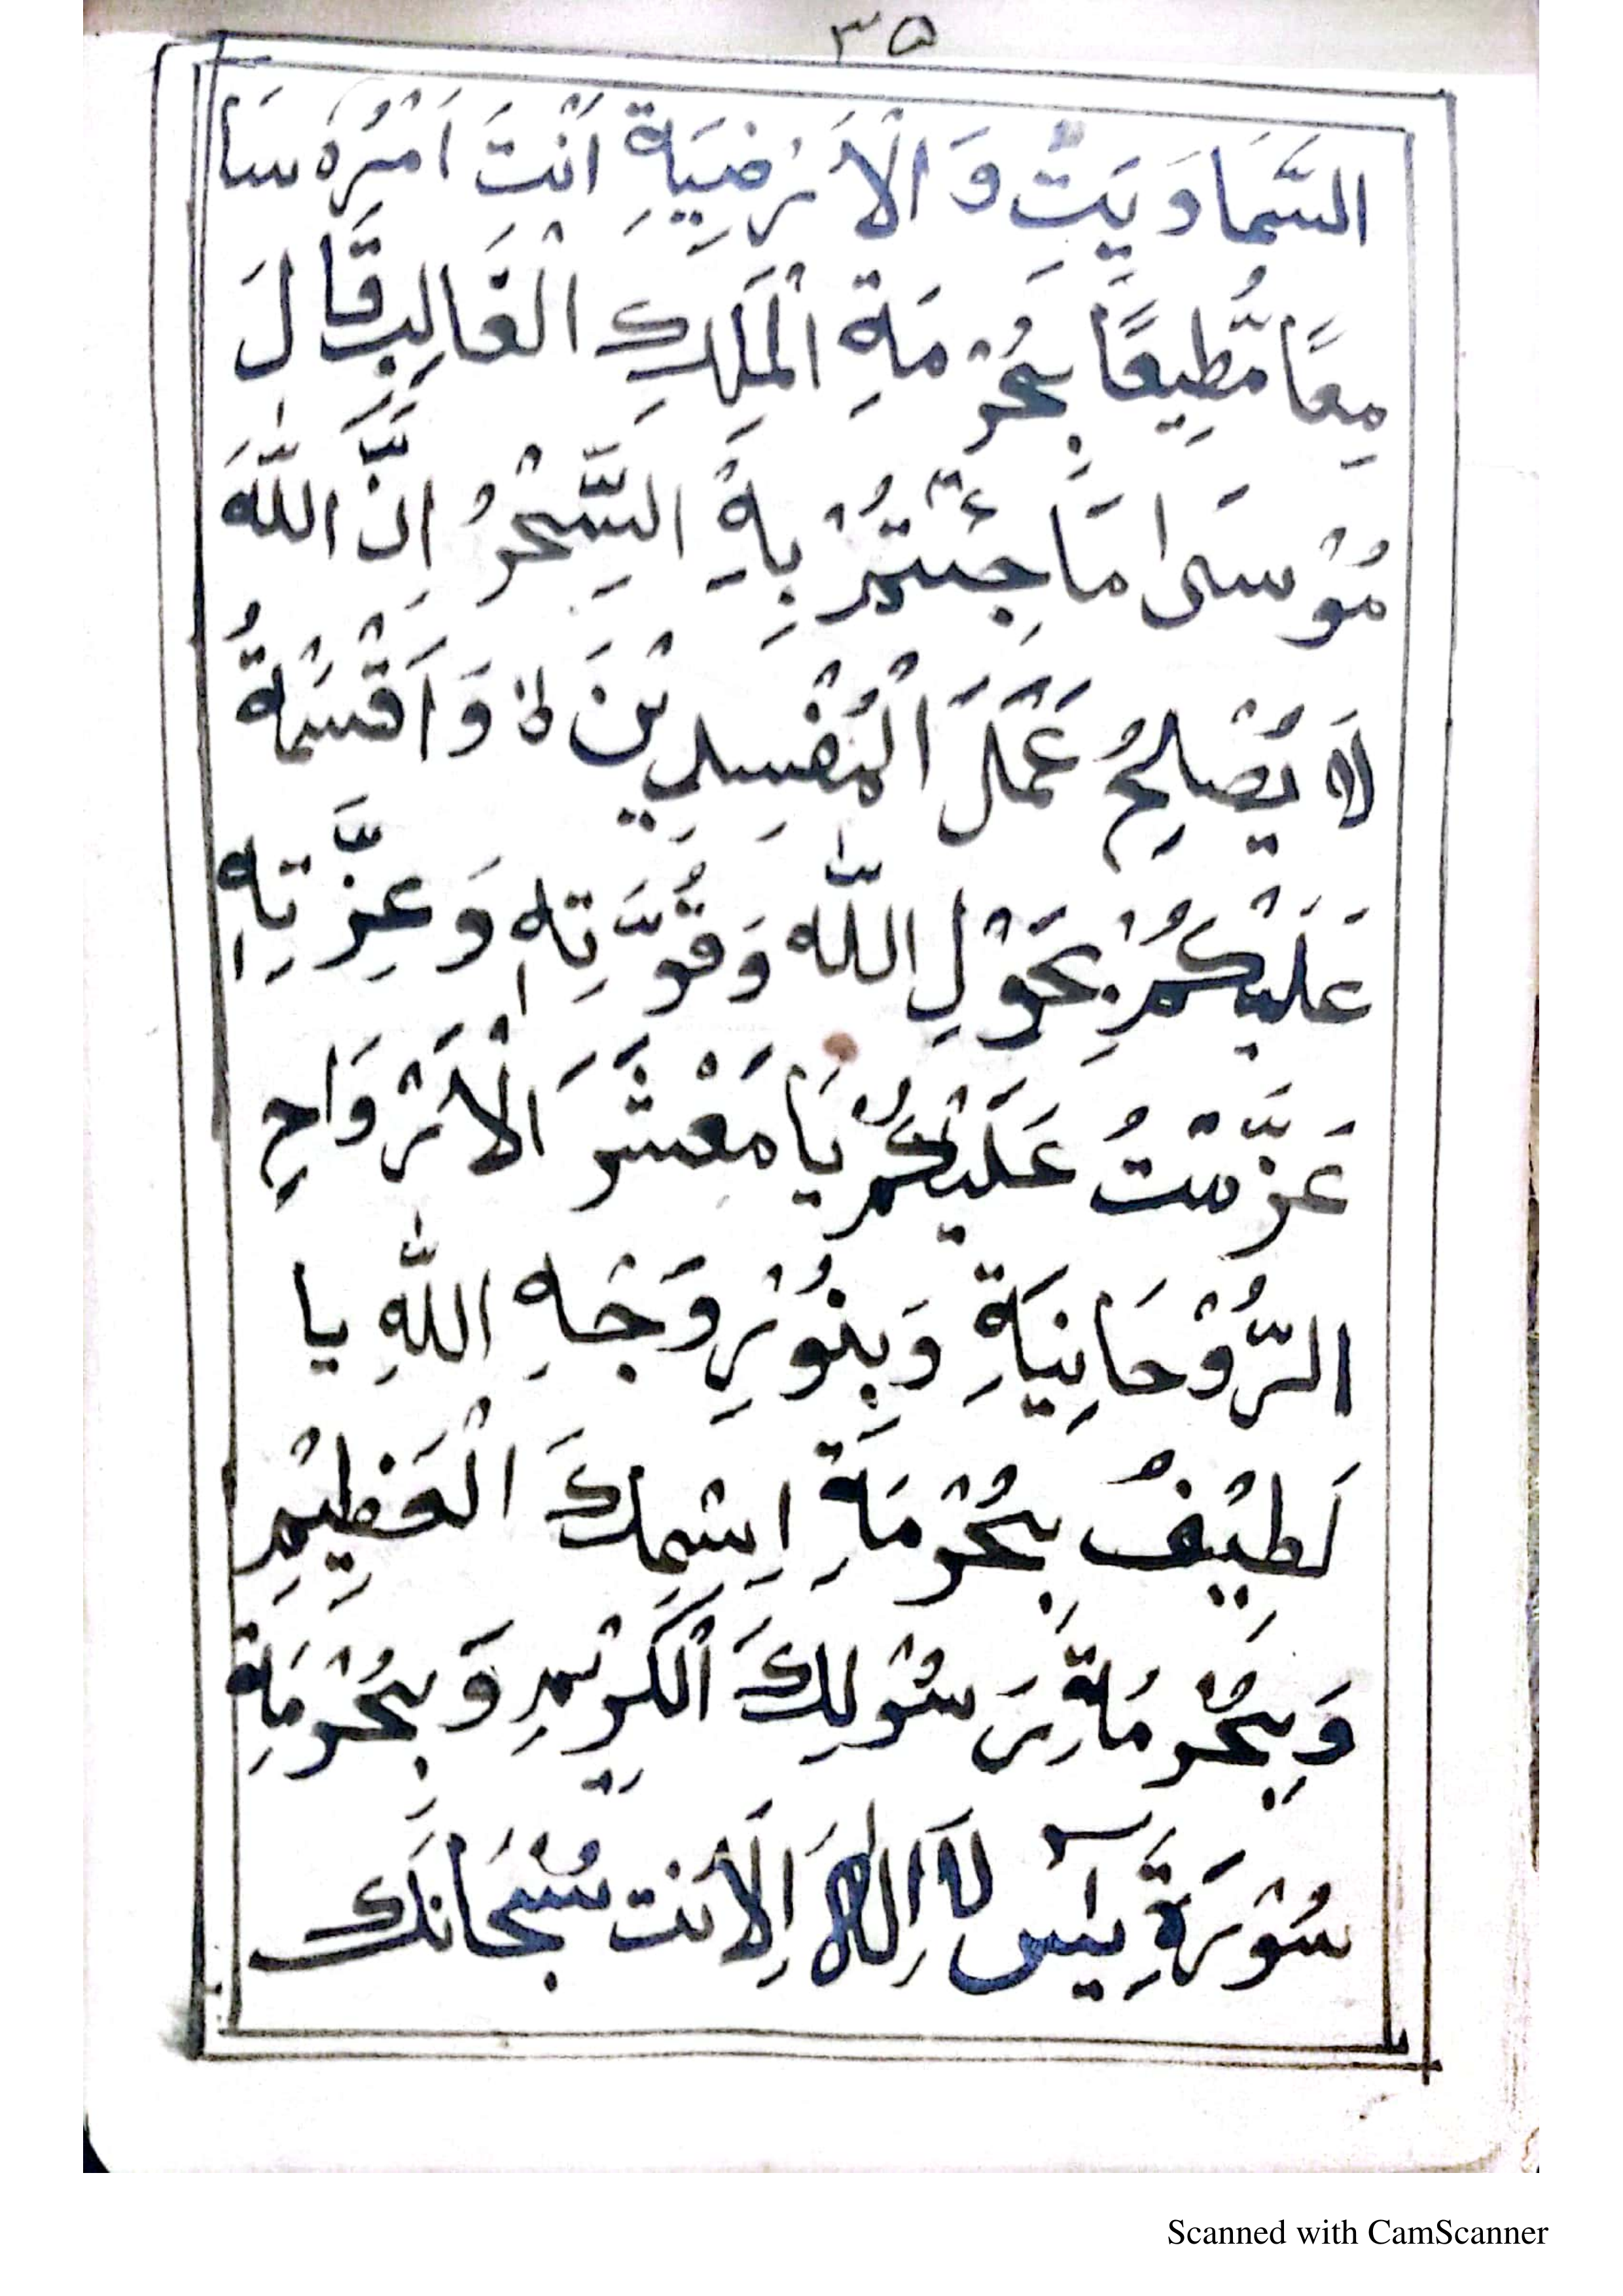 ٣٥
السَّمَاوَيَتِ وَالْاَرْضِيَةِ اَنْتَ اَمْرُهُ سَا
مِعًا مُّطِيعًا بِحُرْمَةِ الْمَلِكِ الْغَالِبِ قَالَ
مُوْسَىٰ مَا جِئْتُمْ بِهِ السِّحْرُ اِنَّ اللّٰهَ
لَا يُصْلِحُ عَمَلَ الْمُفْسِدِيْنَ لا وَاَقْسَمْةُ
عَلَيْكُمْ بِحَوْلِ اللّٰه وَقُوَّتِهٖ وَعِزَّتِهٖ
عَزَّمْتُ عَلَيْكُمْ يَا مَعْشَرَ الْاَرْوَاحِ
الرُّوْحَانِيَةِ وَبِنُوْرِ وَجْهِ اللّٰهِ يا
لَطِيْفُ بِحُرْمَةِ اِسْمِكَ الْعَظِيْمِ
وَبِحُرْمَةِ رَسُوْلِكَ الْكَرِيْمِ وَبِحُرْمَةِ
سُوْرَةِ يٰسٓ لَا اِلٰهَ اِلَّا اَنْت سُبْحَانَكَ
Scanned with CamScanner